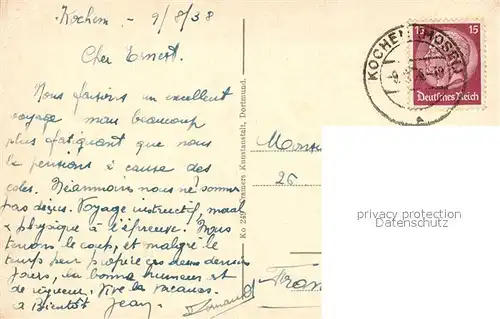 Kochem - 9/8/38
Cher Ernest.
Nous faisons un excellent
voyage mais beaucoup
plus fatiguant que nous
le pensions à cause des
côtes. Néanmoins nous ne sommes
pas déçus. Voyage instructif, moral
& physique à l'épreuve. Nous
tenons le coup, et malgré le
temps peu propice ces deux derniers
jours, la bonne humeur est
de rigueur. Vive les vacances.
à Bientôt Jean.
Ko 249 Cramers Kunstanstalt, Dortmund.
Mons
26
Fran
KOCHEM (MOSEL)
a
15 15
Deutsches Reich
privacy protection
WATERMARK